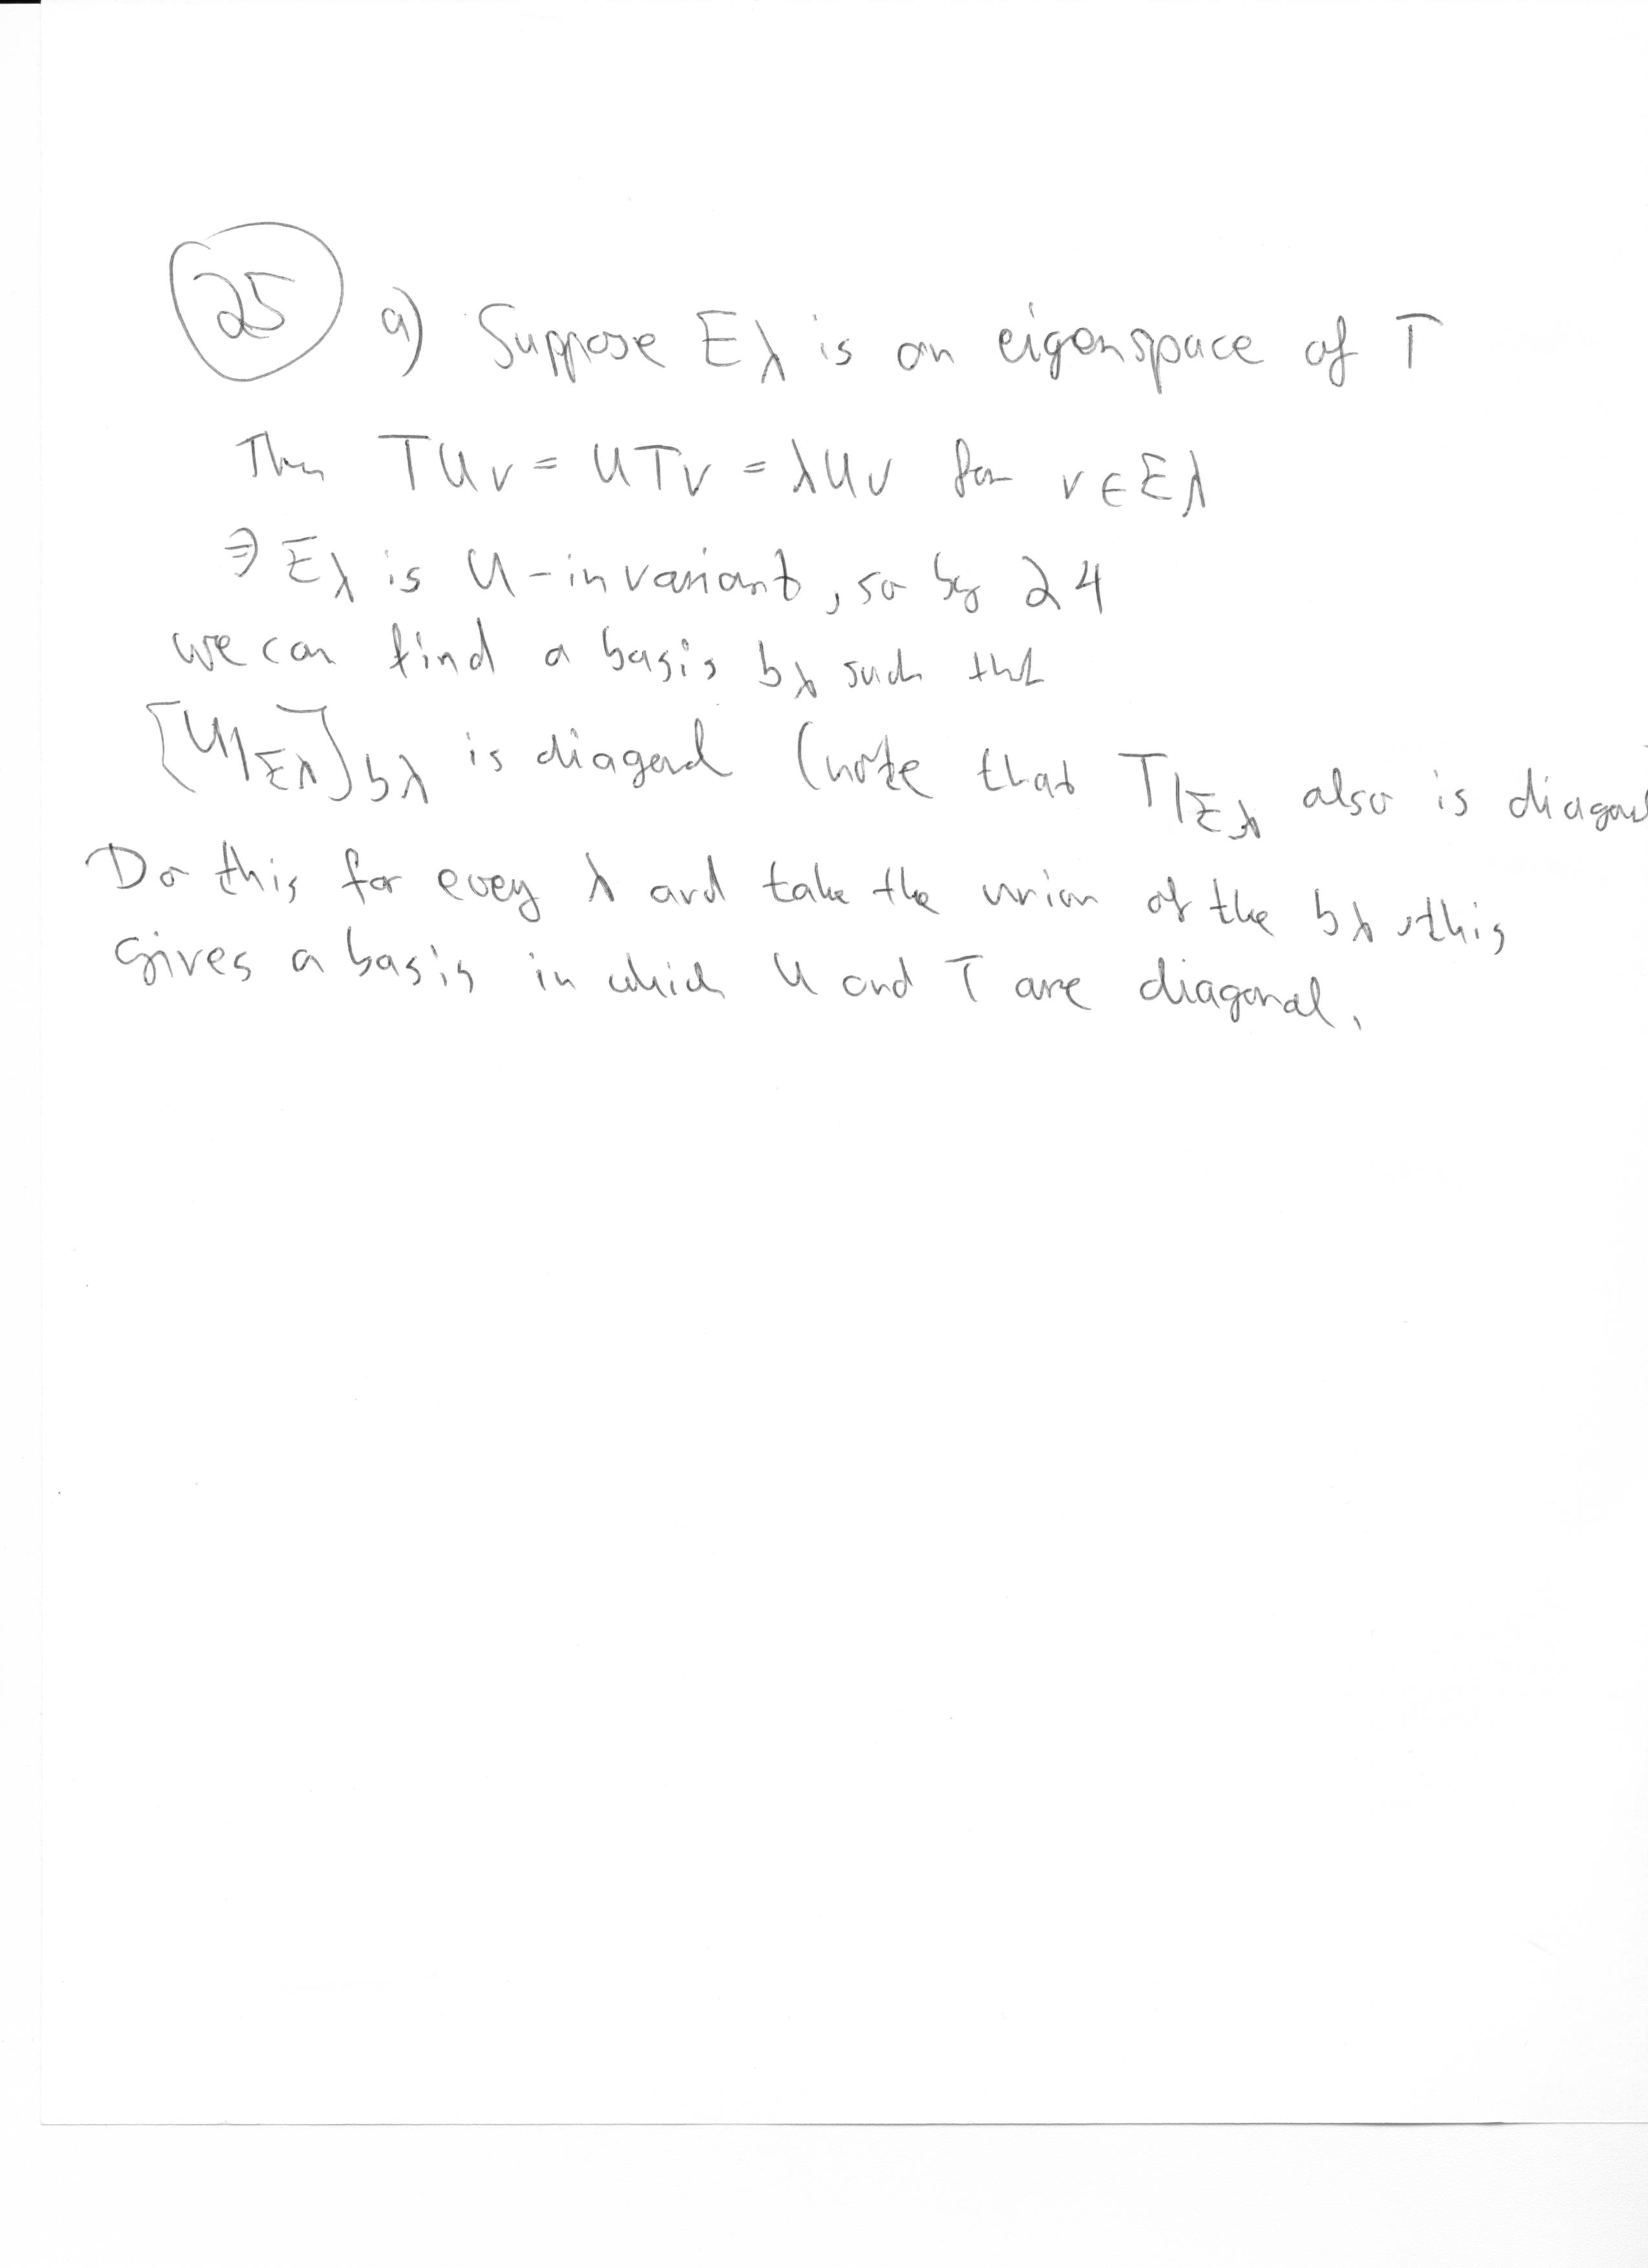 25 a) Suppose Eλ is an eigenspace of T
Then TUv = UTv = λUv for v∈Eλ
⇒ Eλ is U-invariant, so by 24
we can find a basis bλ such that
[U|Eλ]bλ is diagonal (note that T|Eλ also is diagonal
Do this for evey λ and take the union of the bλ, this
gives a basis in which U and T are diagonal.